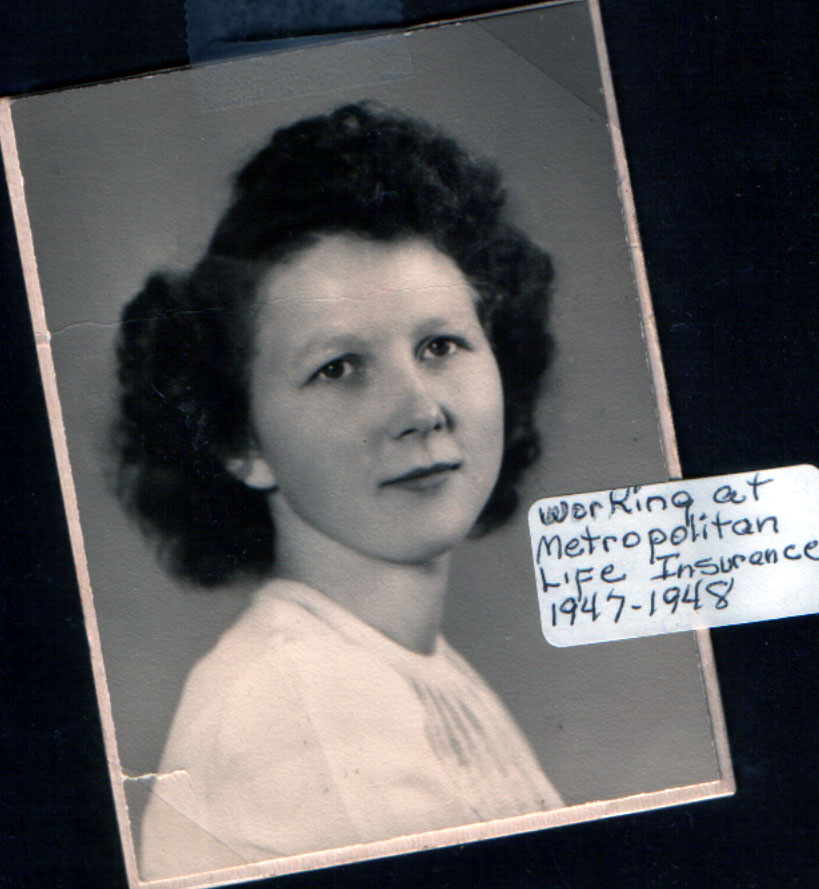 Working at
Metropolitan
Life Insurance
1947-1948